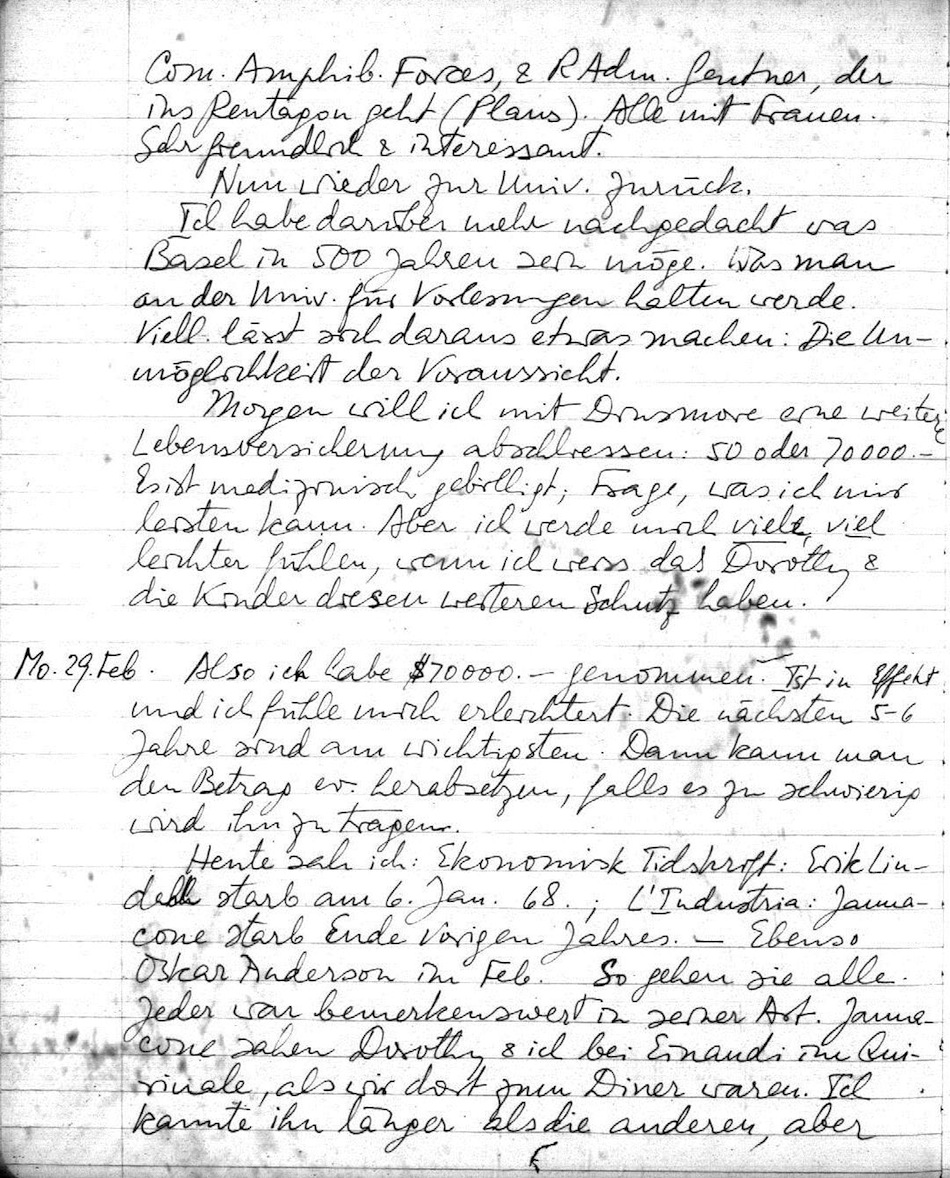 Com. Amphib. Forces, & R Adm. Gentner, der
ins Pentagon geht (Plans). Alle mit Frauen.
Sehr freundlich & interessant.
Nun wieder zur Univ. zurück.
Ich habe darüber mehr nachgedacht was
Basel in 500 Jahren sein möge. Was man
an der Univ. für Vorlesungen halten werde.
Viell. lässt sich daraus etwas machen: Die Un-
möglichkeit der Voraussicht.
Morgen will ich mit Dinsmore eine weitere
Lebensversicherung abschliessen: 50 oder 70000.–
Es ist medizinisch gebilligt; Frage, was ich mir
leisten kann. Aber ich werde mich viel, viel
leichter fühlen, wenn ich weiss das Dorothy &
die Kinder diesen weiteren Schutz haben.
Mo. 29. Feb. Also ich habe $70000.– genommen. Ist in Effekt
und ich fühle mich erleichtert. Die nächsten 5-6
Jahre sind am wichtigsten. Dann kann man
den Betrag ev. herabsetzen, falls es zu schwierig
wird ihn zu tragen.
Heute sah ich: Ekonomisk Tidskrift: Erik Lin-
dahl starb am 6. Jan. 68. ; L'Industria: Janna-
cone starb Ende vorigen Jahres. – Ebenso
Oskar Anderson im Feb. So gehen sie alle.
Jeder war bemerkenswert in seiner Art. Janna-
cone sahen Dorothy & ich bei Einaudi im Qui-
rinale, als wir dort zum Diner waren. Ich
kannte ihn länger als die anderen, aber